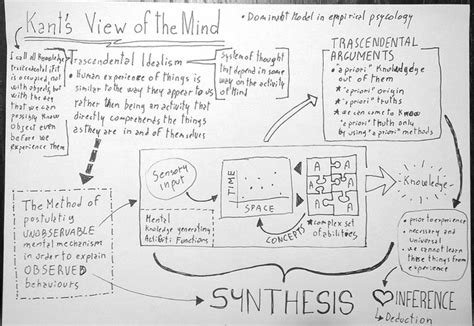 Kant's View of the Mind
• Dominant Model in empirical psycology
I call all Knowledge
trascendental if it
is occupied, not
with objects, but
with the way
that we can
possibly Know
Object even
before we
Experience them
Trascendental Idealism
• Human experience of things is
similar to the way they appear to us
rather then being an activity that
directly comprehends the things
as they are in and of themselves
System of thought
that depend in some
way on the activity
of Mind
TRASCENDENTAL
ARGUMENTS
"a priori" Knowledge
out of them
"a priori" origin
"a priori" truths
we can come to Know
"a priori" truth only
by using "a priori" methods
The Method of
postulatig
UNOBSERVABLE
mental mechanism
in order to explain
OBSERVED
behaviours
Sensory
input
Mental
Knowledge generating
Functions
TIME
SPACE
CONCEPTS
A A
A A
A A
complex set
of abilities
Knowledge
• prior to experience
• necessary and
universal
• we cannot learn
those things from
experience
SYNTHESIS
INFERENCE
↳ Deduction